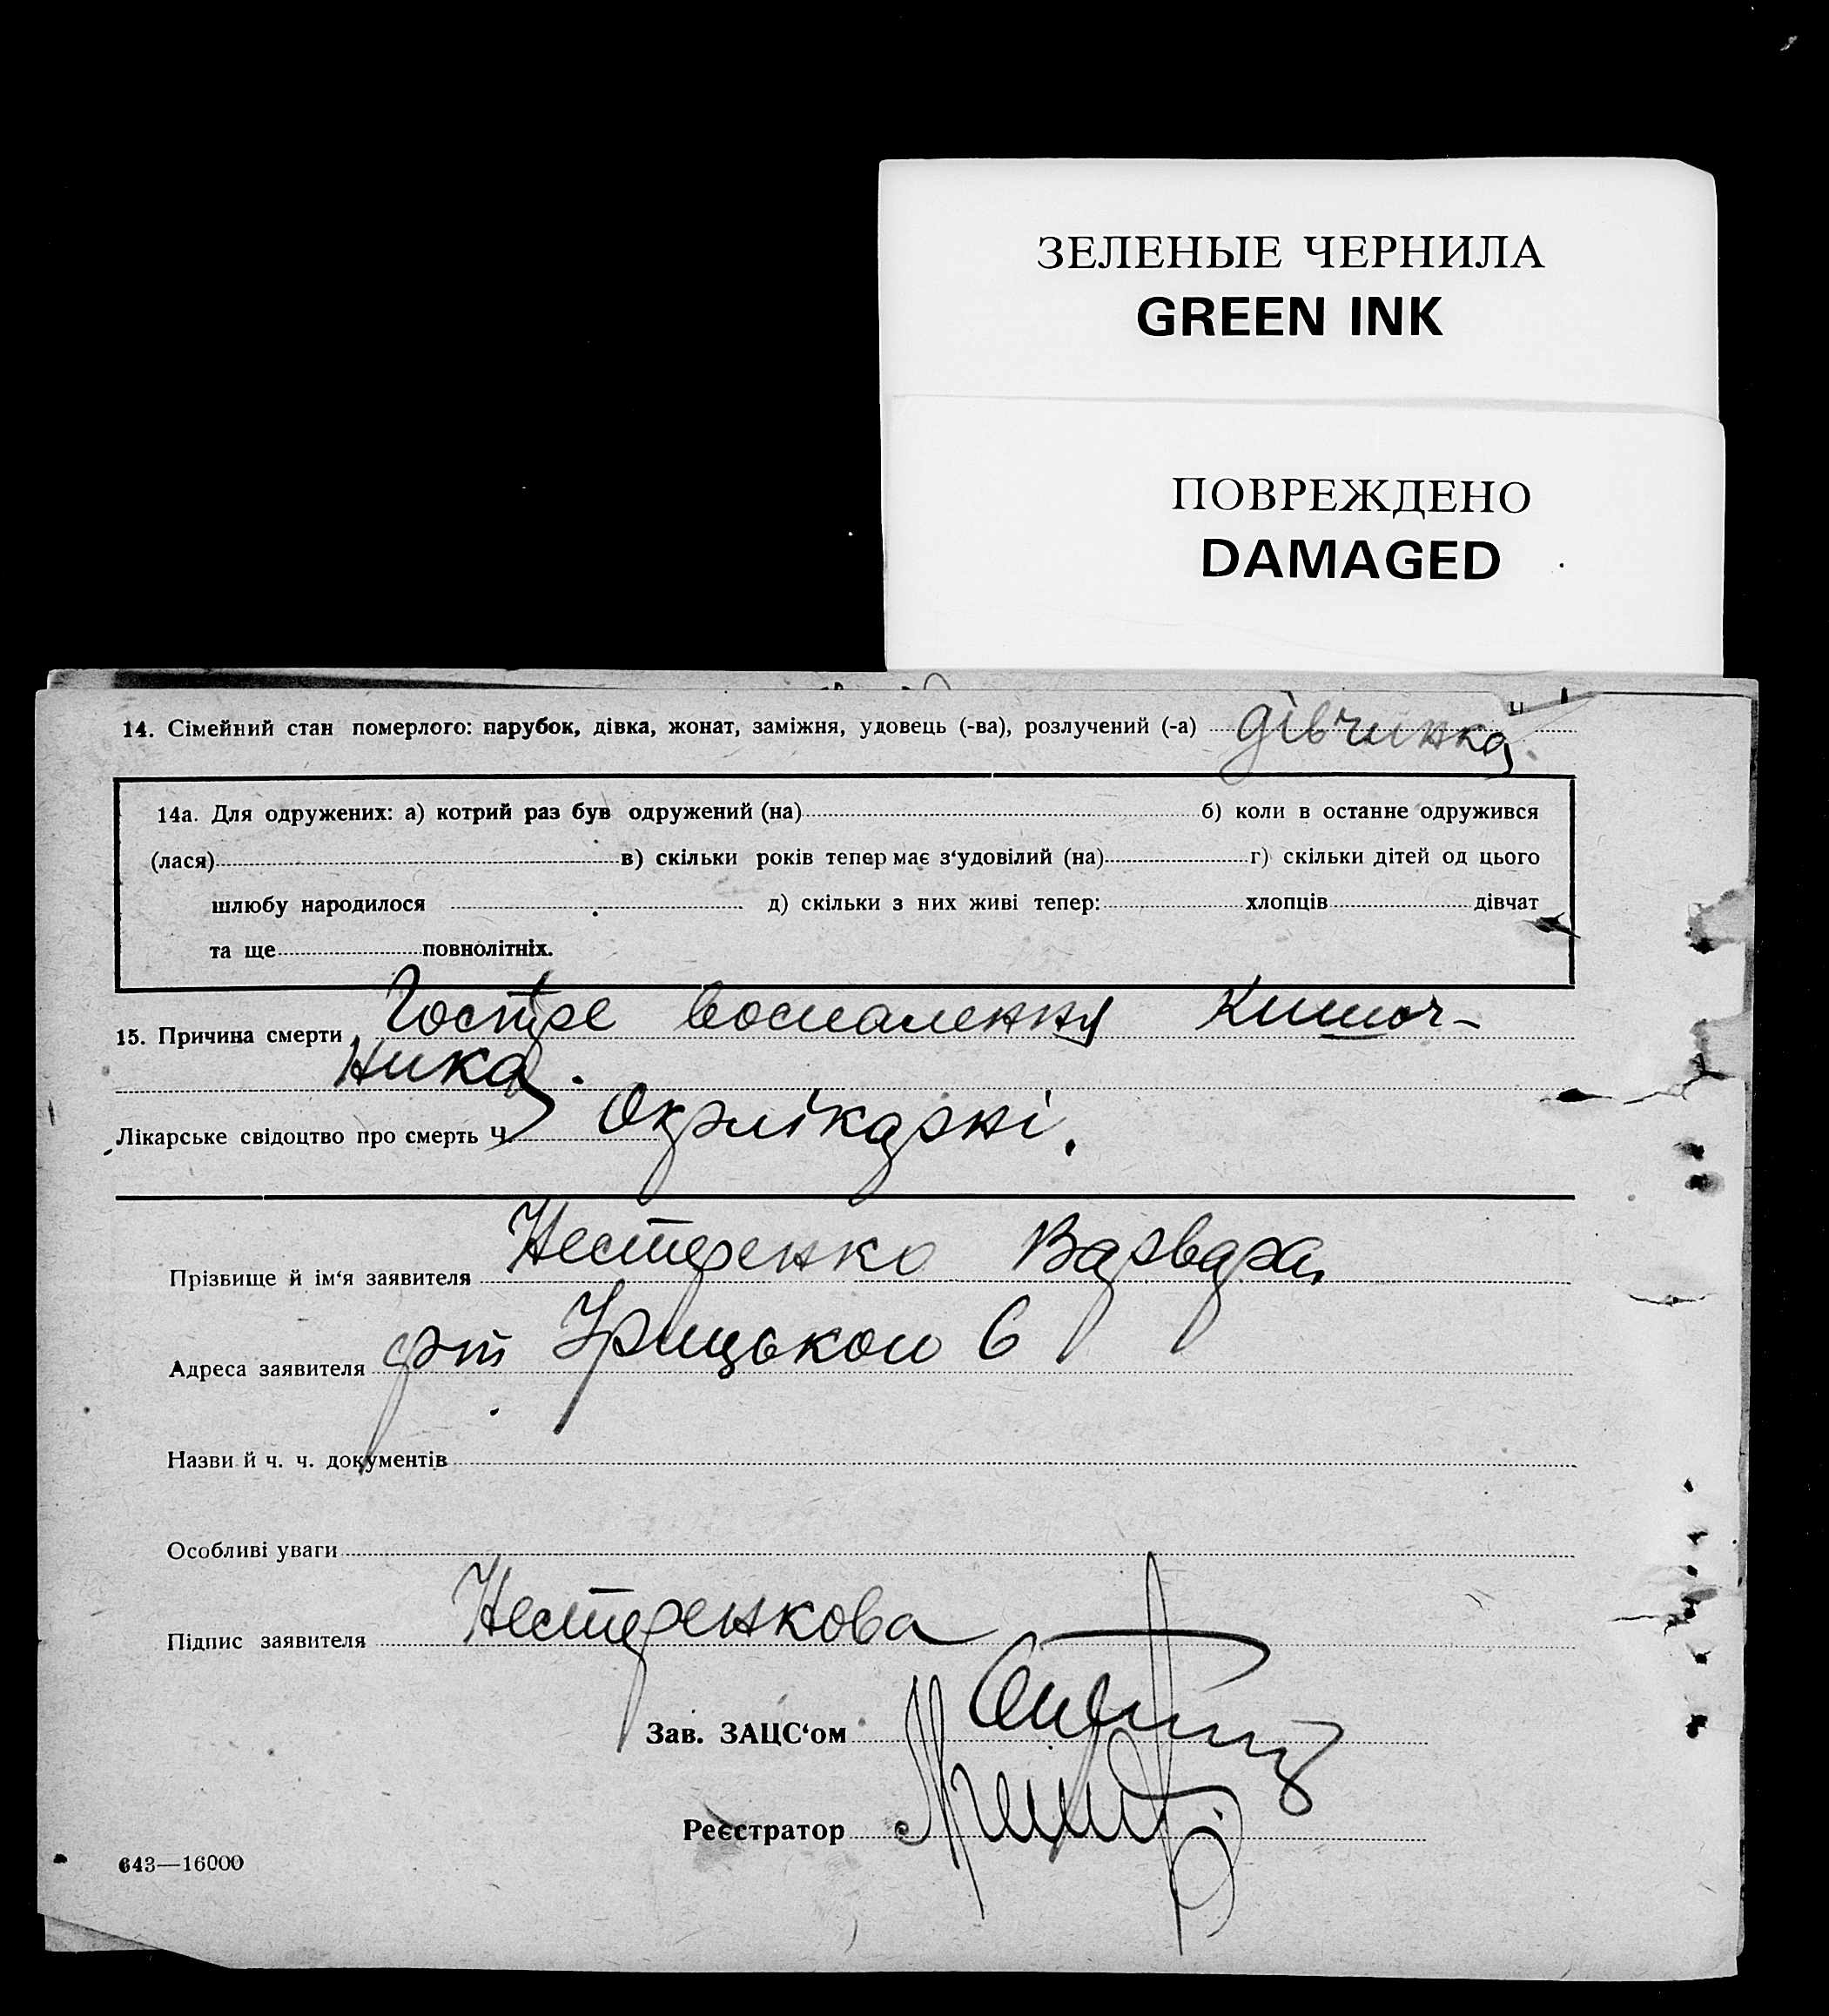 ЗЕЛЕНЫЕ ЧЕРНИЛА
GREEN INK
ПОВРЕЖДЕНО
DAMAGED
14. Сімейний стан померлого: парубок, дівка, жонат, заміжня, удовець (-ва), розлучений (-а) дівчинка.
14а. Для одружених: а) котрий раз був одружений (на) б) коли в останне одружився
(лася) в) скільки років тепер має з‘удовілий (на) г) скільки дітей од цього
шлюбу народилося д) скільки з них живі тепер: хлопців дівчат
та ще повнолітніх.
15. Причина смерти Гостре воспалення Кишоч-
ника.
Лікарське свідоцтво про смерть Ч. Окрлікарні.
Прізвище й ім‘я заявителя Нестеренко Варвара
Адреса заявителя Урицького 6
Назви й ч. ч. документів
Особливі уваги
Підпис заявителя Нестеренкова
Зав. ЗАЦС‘ом
Реєстратор
643—16000